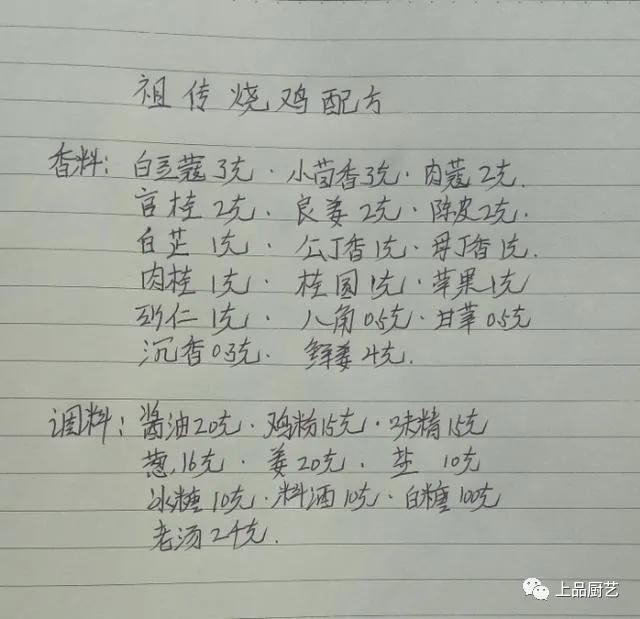 祖传烧鸡配方
香料：白豆蔻3克·小茴香3克·肉蔻2克.
官桂2克.良姜2克·陈皮2克.
白芷1克·公丁香1克·母丁香1克.
肉桂1克·桂圆1克·苹果1克
砂仁1克·八角0.5克·甘草0.5克
沉香0.3克.鲜姜4克.
调料：酱油20克·鸡粉15克·味精15克
葱.16克·姜20克.盐10克
冰糖10克·料酒10克·白糖100克
老汤2千克.
上品厨艺